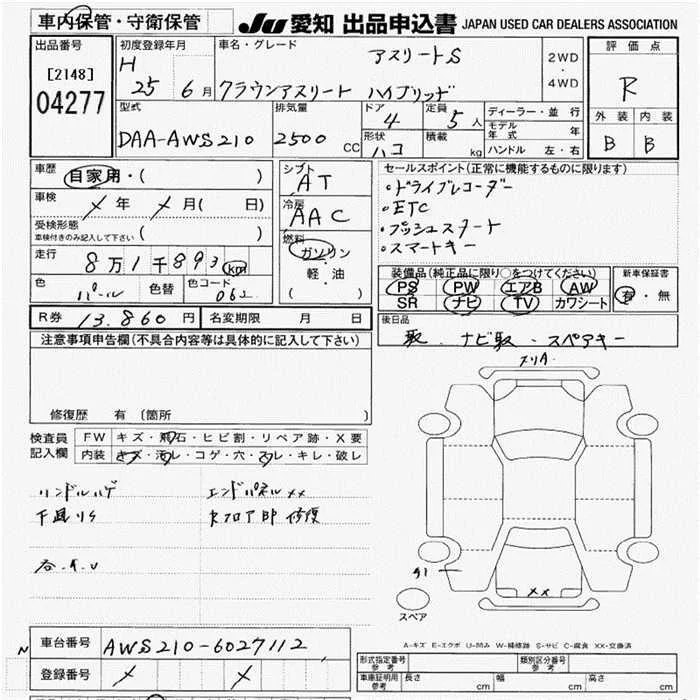 車内保管・守衛保管
JU 愛知 出品申込書 JAPAN USED CAR DEALERS ASSOCIATION
出品番号
[2148]
04277
初度登録年月
H
25 6 月
車名・グレード
アスリートS
クラウンアスリート ハイブリッド
2WD
・
4WD
評価点
R
外装 内装
B B
型式
DAA-AWS210
排気量
2500 CC
ドア
4
形状
ハコ
定員
5 人
積載
kg
ディーラー・並行
モデル年式 年
ハンドル 左・右
車歴
自家用・( )
車検
メ 年 メ 月( 日)
受検形態
車検付きのみ記入して下さい ( )
走行
8 万 1 千 893 km
色
パール
色替
色コード
062
シフト
AT
冷房
AAC
燃料
ガソリン
・
軽・油
( )
セールスポイント(正常に機能するものに限ります)
・ドライブレコーダー
・ETC
・プッシュスタート
・スマートキー
装備品(純正品に限り○をつけてください)
PS PW エアB AW
SR ナビ TV カワシート
新車保証書
有・無
R券 13.860 円
名変期限 月 日
後日品
取. ナビ取. スペアキー
注意事項申告欄(不具合内容等は具体的に記入して下さい)
修復歴 有 (箇所
検査員
記入欄
FW キズ・飛石・ヒビ割・リペア跡・X要
内装 キズ・汚レ・コゲ・穴・スレ・キレ・破レ
ハンドルハゲ
下廻りS
エンドパネルXX
修復
メリA
41
XX
スペア
A-キズ E-エクボ U-凹み W-補修跡 S-サビ C-腐食 XX-交換済
車台番号 AWS210-6027112
登録番号 メ メ
形式指定番号
参考
類別区分番号
参考
車庫証明用
参考
長さ cm 幅 cm 高さ cm